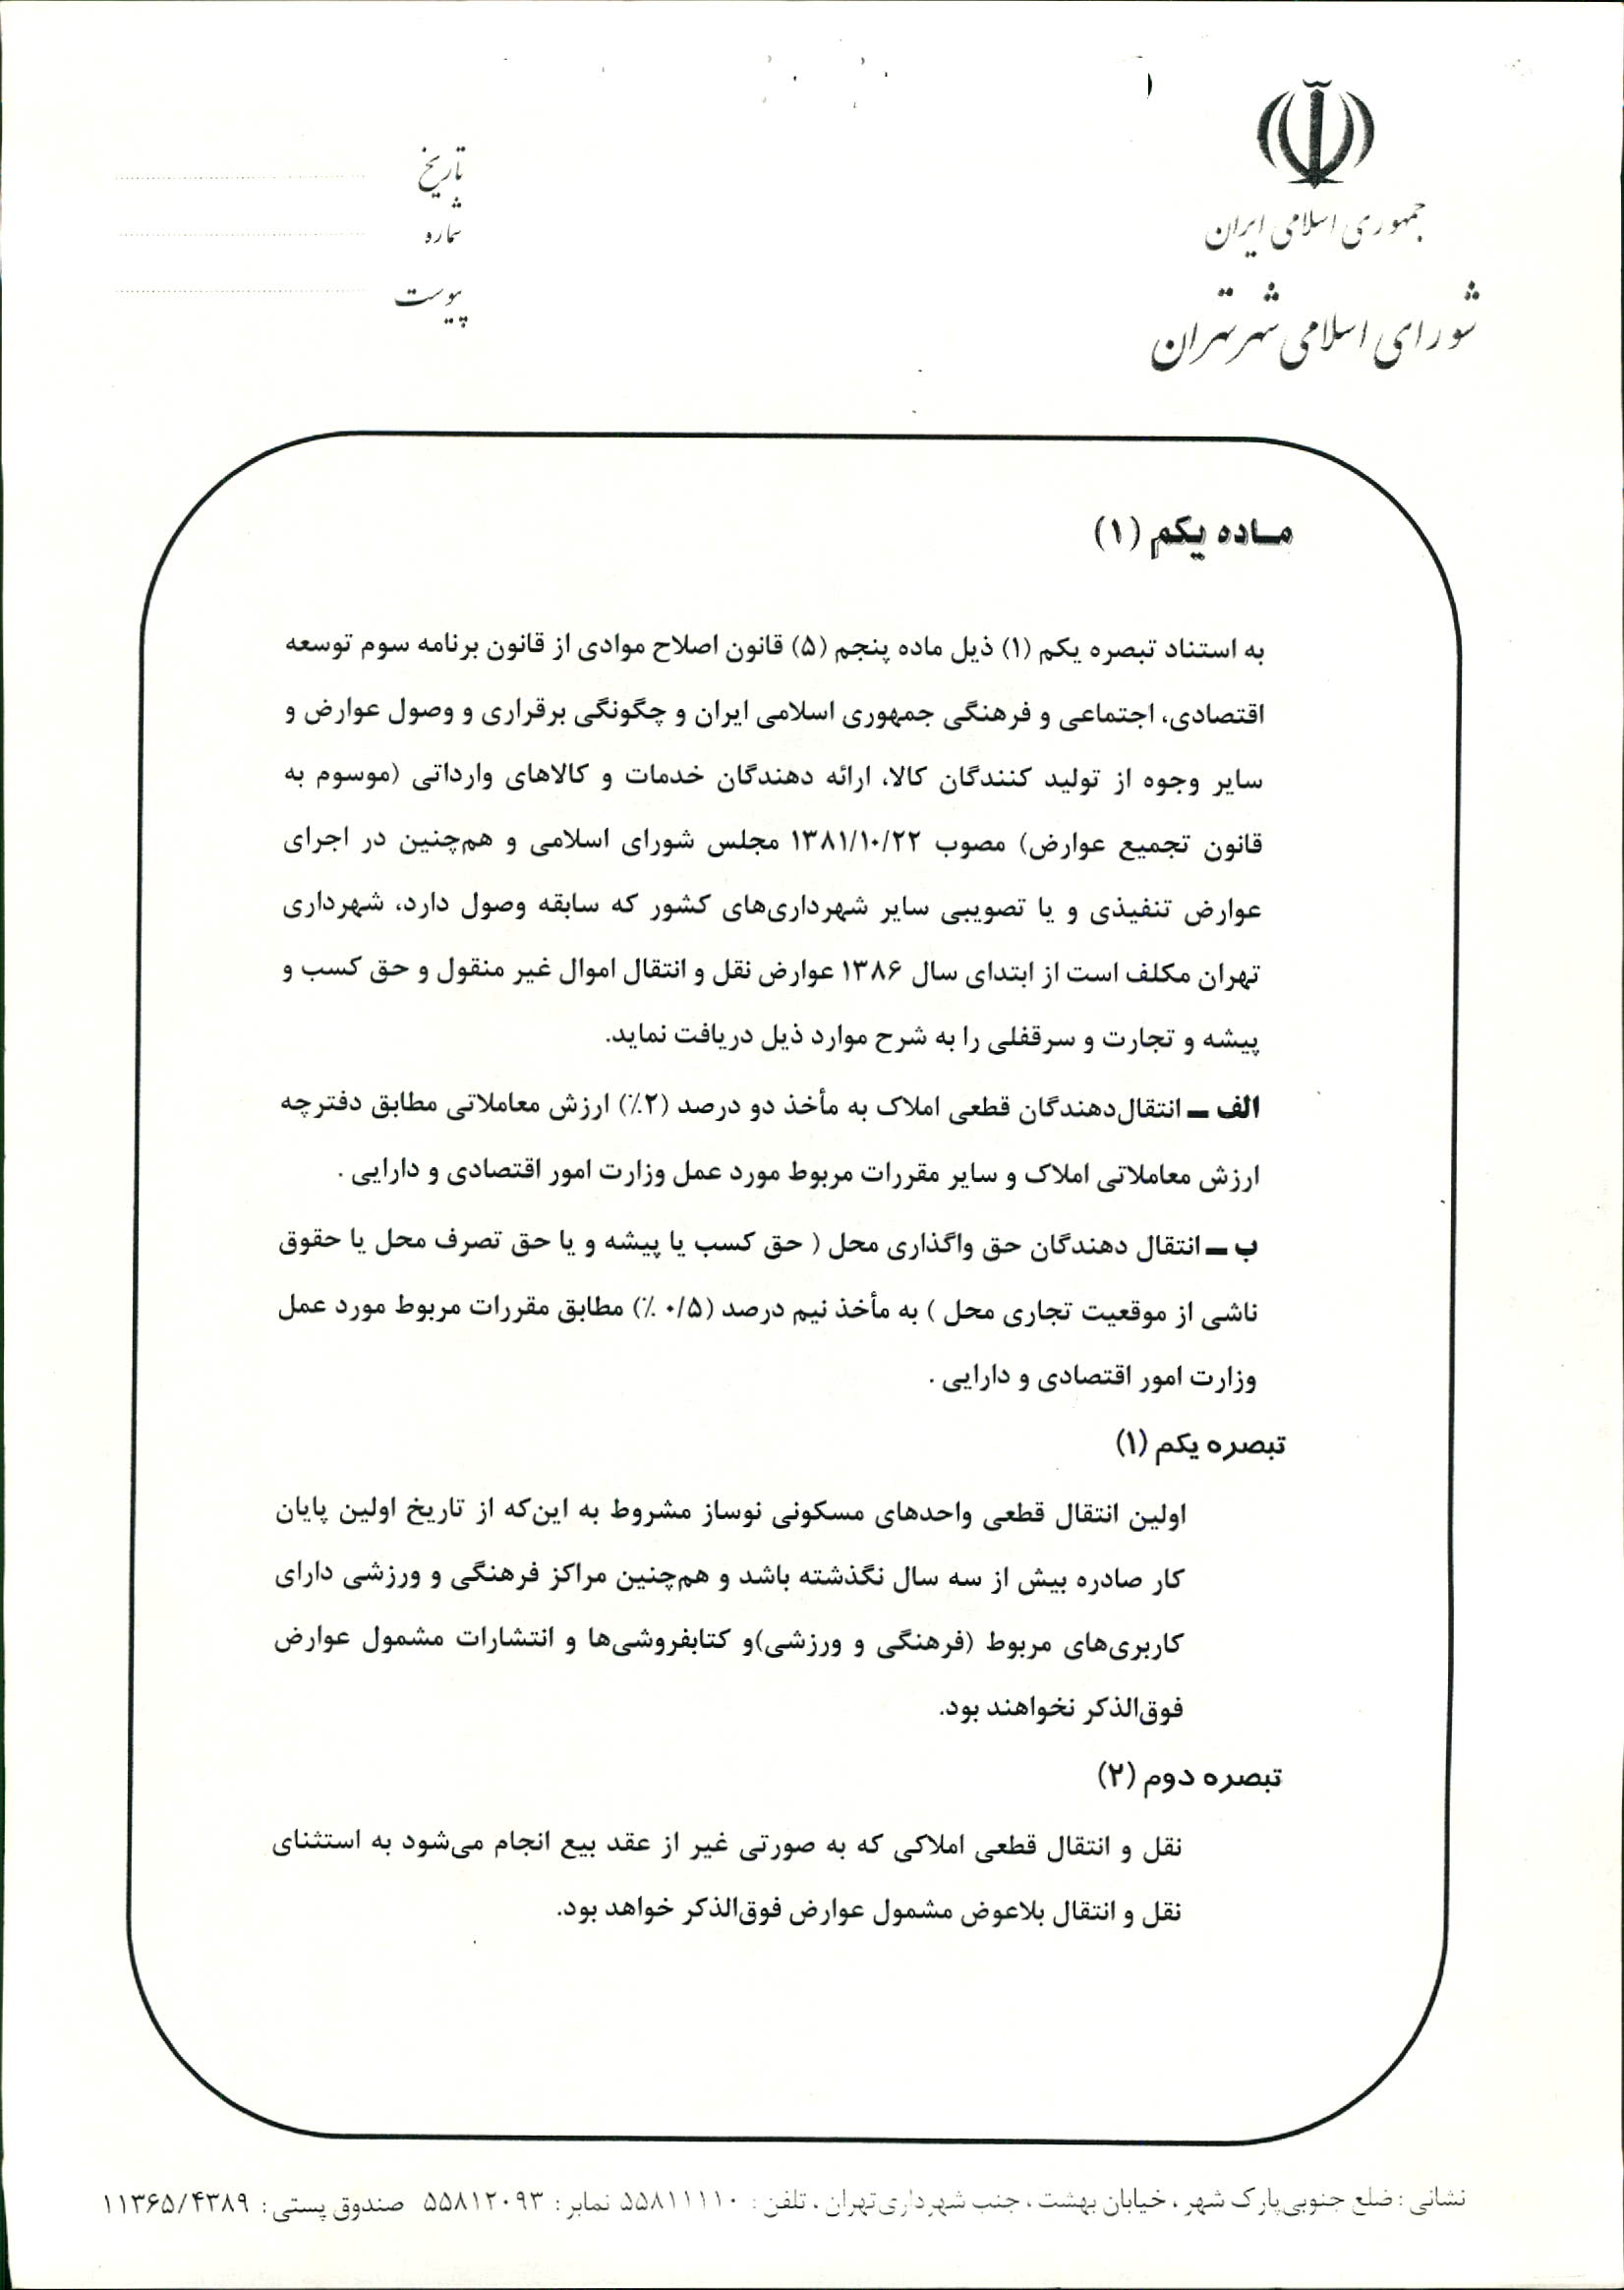 جمهوری اسلامی ایران
شورای اسلامی شهر تهران
تاریخ
شماره
پیوست
ماده یکم (۱)
به استناد تبصره یکم (۱) ذیل ماده پنجم (۵) قانون اصلاح موادی از قانون برنامه سوم توسعه
اقتصادی، اجتماعی و فرهنگی جمهوری اسلامی ایران و چگونگی برقراری و وصول عوارض و
سایر وجوه از تولید کنندگان کالا، ارائه دهندگان خدمات و کالاهای وارداتی (موسوم به
قانون تجمیع عوارض) مصوب ۱۳۸۱/۱۰/۲۲ مجلس شورای اسلامی و هم‌چنین در اجرای
عوارض تنفیذی و یا تصویبی سایر شهرداری‌های کشور که سابقه وصول دارد، شهرداری
تهران مکلف است از ابتدای سال ۱۳۸۶ عوارض نقل و انتقال اموال غیر منقول و حق کسب و
پیشه و تجارت و سرقفلی را به شرح موارد ذیل دریافت نماید.
الف ــ انتقال‌دهندگان قطعی املاک به مأخذ دو درصد (۲٪) ارزش معاملاتی مطابق دفترچه
ارزش معاملاتی املاک و سایر مقررات مربوط مورد عمل وزارت امور اقتصادی و دارایی .
ب ــ انتقال دهندگان حق واگذاری محل ( حق کسب یا پیشه و یا حق تصرف محل یا حقوق
ناشی از موقعیت تجاری محل ) به مأخذ نیم درصد (۰/۵ ٪) مطابق مقررات مربوط مورد عمل
وزارت امور اقتصادی و دارایی .
تبصره یکم (۱)
اولین انتقال قطعی واحدهای مسکونی نوساز مشروط به این‌که از تاریخ اولین پایان
کار صادره بیش از سه سال نگذشته باشد و هم‌چنین مراکز فرهنگی و ورزشی دارای
کاربری‌های مربوط (فرهنگی و ورزشی)و کتابفروشی‌ها و انتشارات مشمول عوارض
فوق‌الذکر نخواهند بود.
تبصره دوم (۲)
نقل و انتقال قطعی املاکی که به صورتی غیر از عقد بیع انجام می‌شود به استثنای
نقل و انتقال بلاعوض مشمول عوارض فوق‌الذکر خواهد بود.
نشانی : ضلع جنوبی پارک شهر ، خیابان بهشت ، جنب شهرداری تهران ، تلفن : ۵۵۸۱۱۱۱۰ نمابر : ۵۵۸۱۲۰۹۳ صندوق پستی : ۱۱۳۶۵/۴۳۸۹